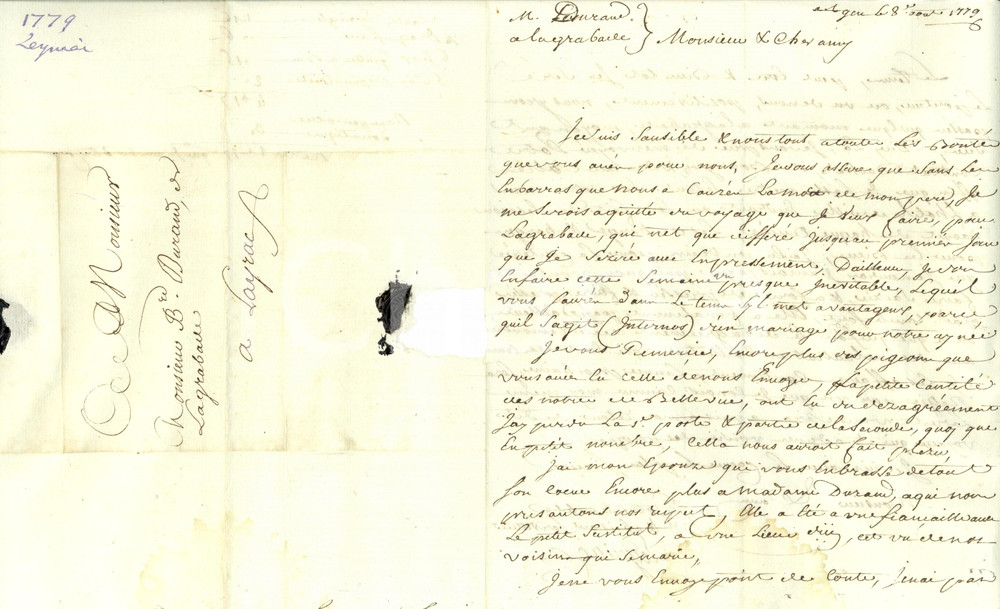 1779
Leymar
A Monsieur
Monsieur Brd. Durand, de
Lagrabade
a Layrac
M. Durand
a lagrabade
a agen le 8 1779
Monsieur & Cher amy
Je suis Sansible & nous tout a toutes Les Bonté
que vous avés pour nous, Je vous assure que Sans Les
Enbarras que nous a Causés La mort de mon pere, Je
me Serois aquitté du voyage que Je Veux faire, pour
Lagrabade, qui net que differé Jusquau premier Jour
que Je Sairé avec Enpressement, Dailleurs, je von
Enfaire cette Semaine un presque Inevitable, Lequel
vous Saurés dans Le tems Syl met avantageux, parce
quil Sagit (Internos) d'un mariage pour notre aynée
Je vous Remercie, Encore plus des pigeons que
vous avés Eu celle de nous Envoyer, La petite Cantité
des notre de Bellevüe, ont Eu du dezagréement
Jay perdu La 1e. ponte & partie de la Seconde, quoy que
En petit nombre, Cella nous auroit fait plezir,
Jai mon Epouze que vous Enbrasse de tout
Son Coeur Encore plus a madame Durand, a qui nous
presantons nos respet, Ele a été a une fiancaille avec
Le petit Sustitut, a une Lieue dicy, cet un de nos
voisins qui Se marie,
Je ne vous Envoye point de Conte, Je nai pas